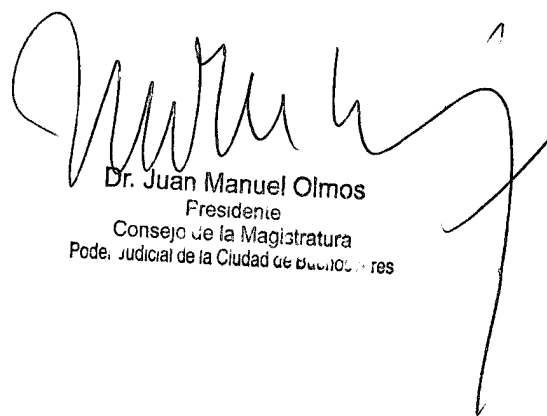 Dr. Juan Manuel Olmos
Presidente
Consejo de la Magistratura
Poder Judicial de la Ciudad de Buenos Aires